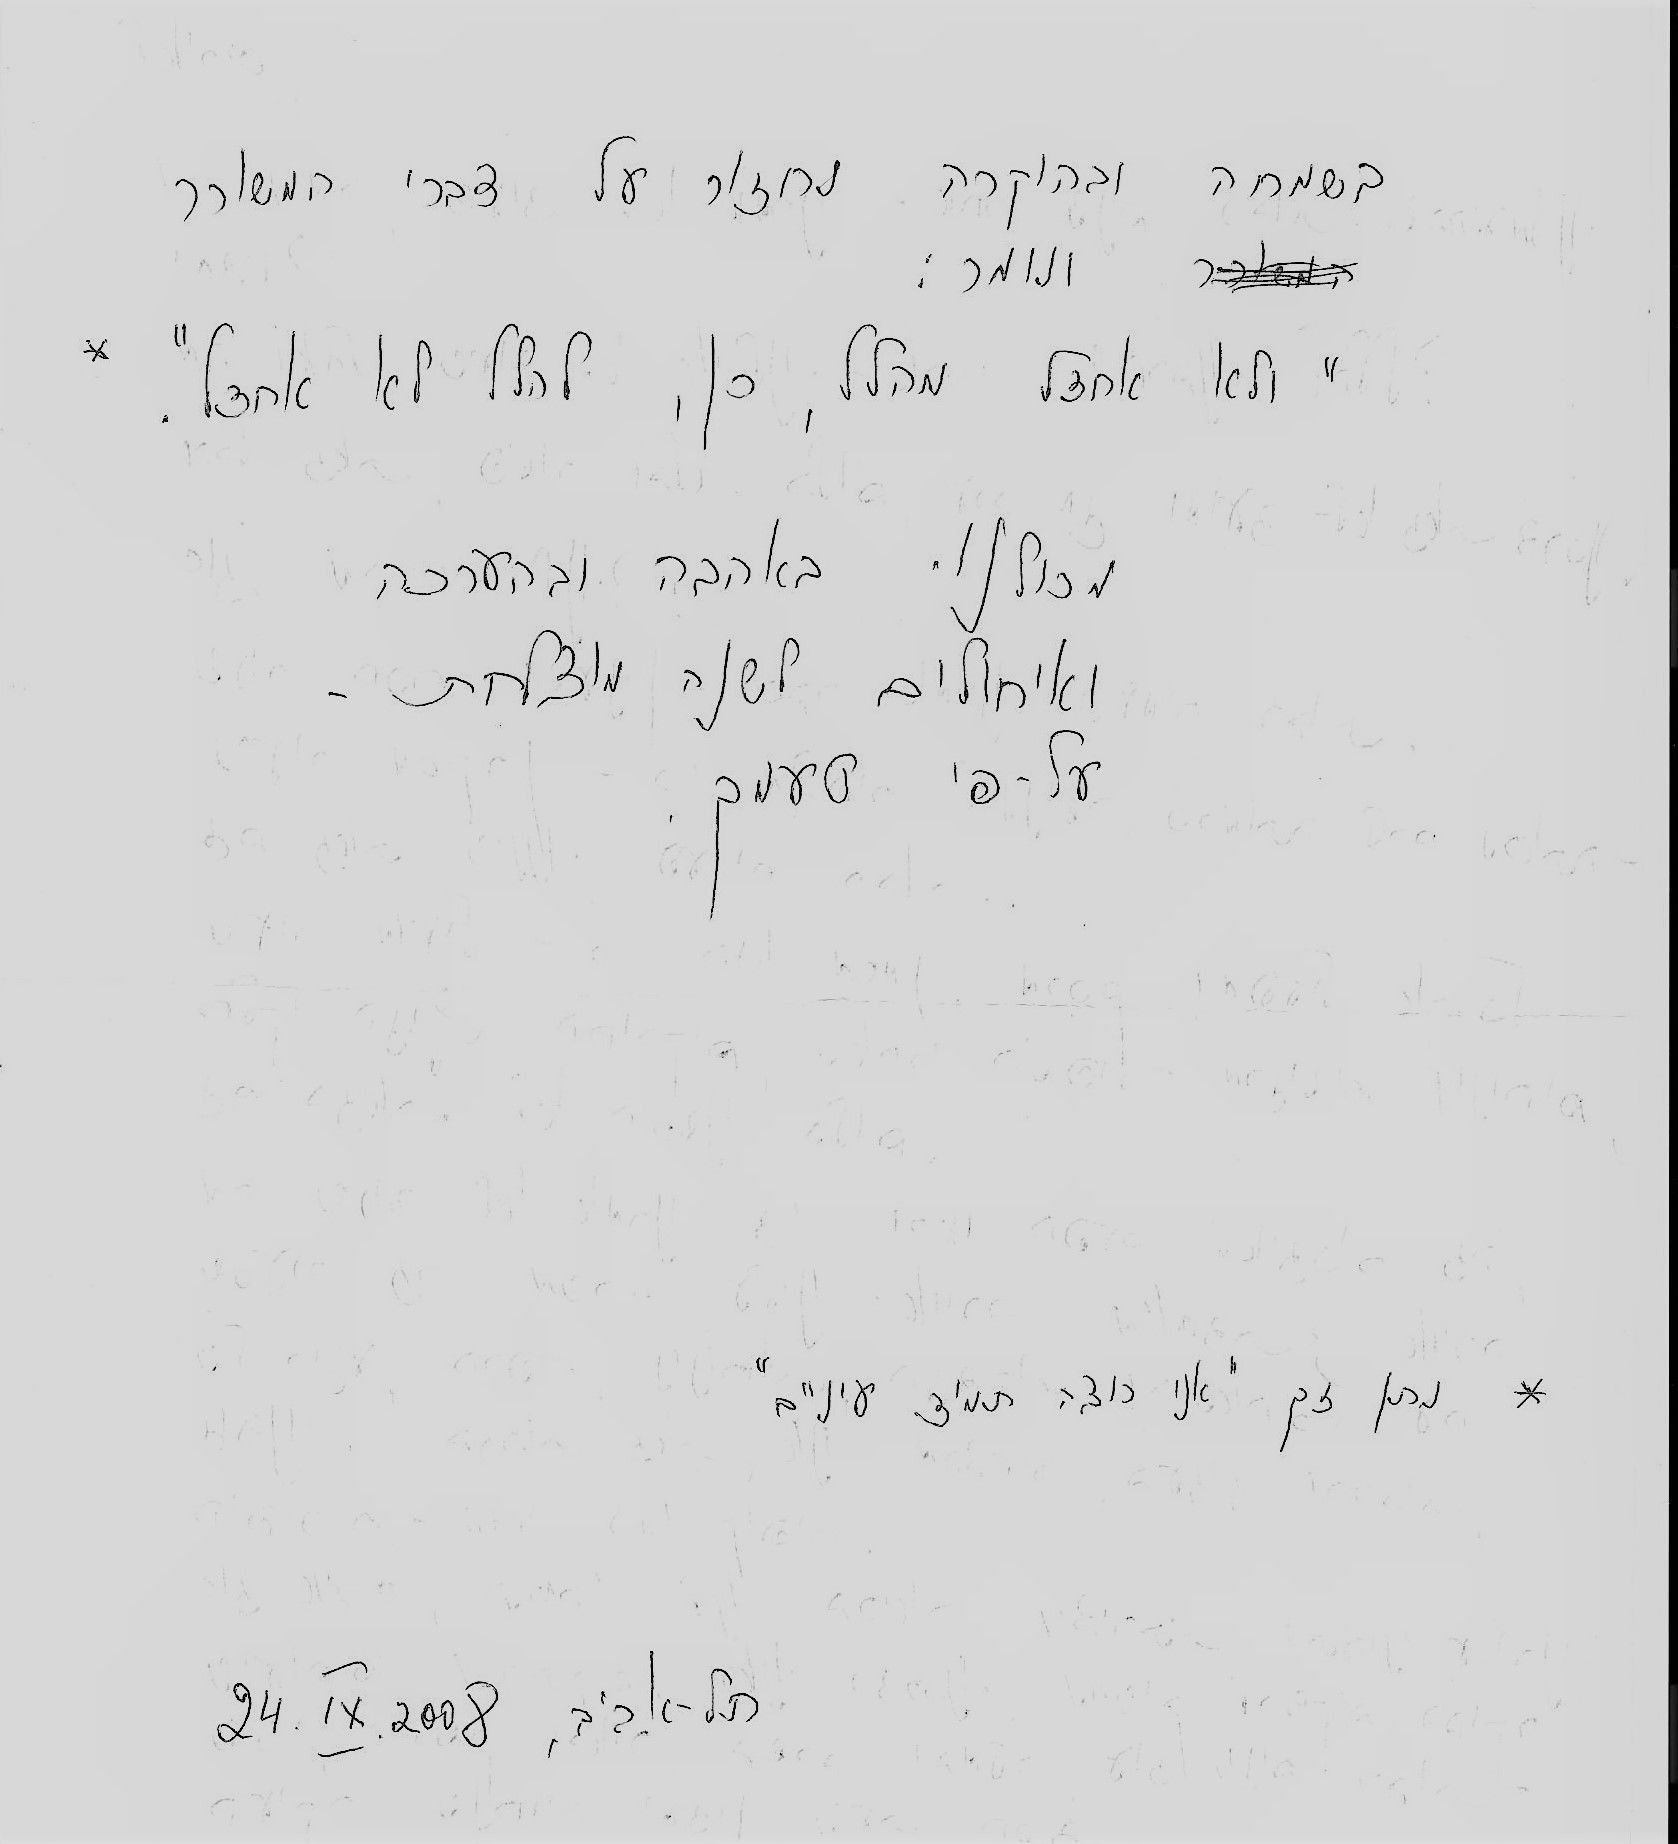 בשמחה ובהוקרה נחזור על דברי המשורר
ונומר:
"ולא אחדל מהלל, כן, להלל לא אחדל". *
מכולנו. באהבה ובהערכה
ואיחולים לשנה מוצלחת -
על-פי טעמך.
* נתן זך "אני רוצה תמיד עיניים"
תל-אביב, 24.IX.2008